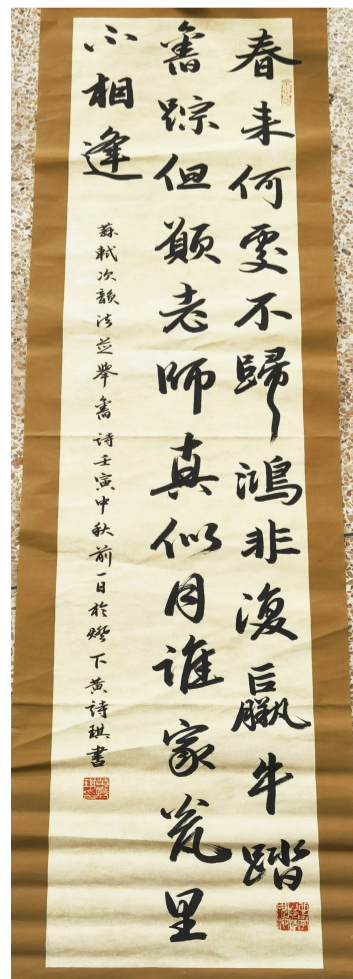 春来何處不歸鴻非復羸牛踏
舊踪但願老師真似月誰家瓮里
不相逢
蘇軾次韻法芝舉舊詩壬寅中秋前一日於燈下黄詩琪書